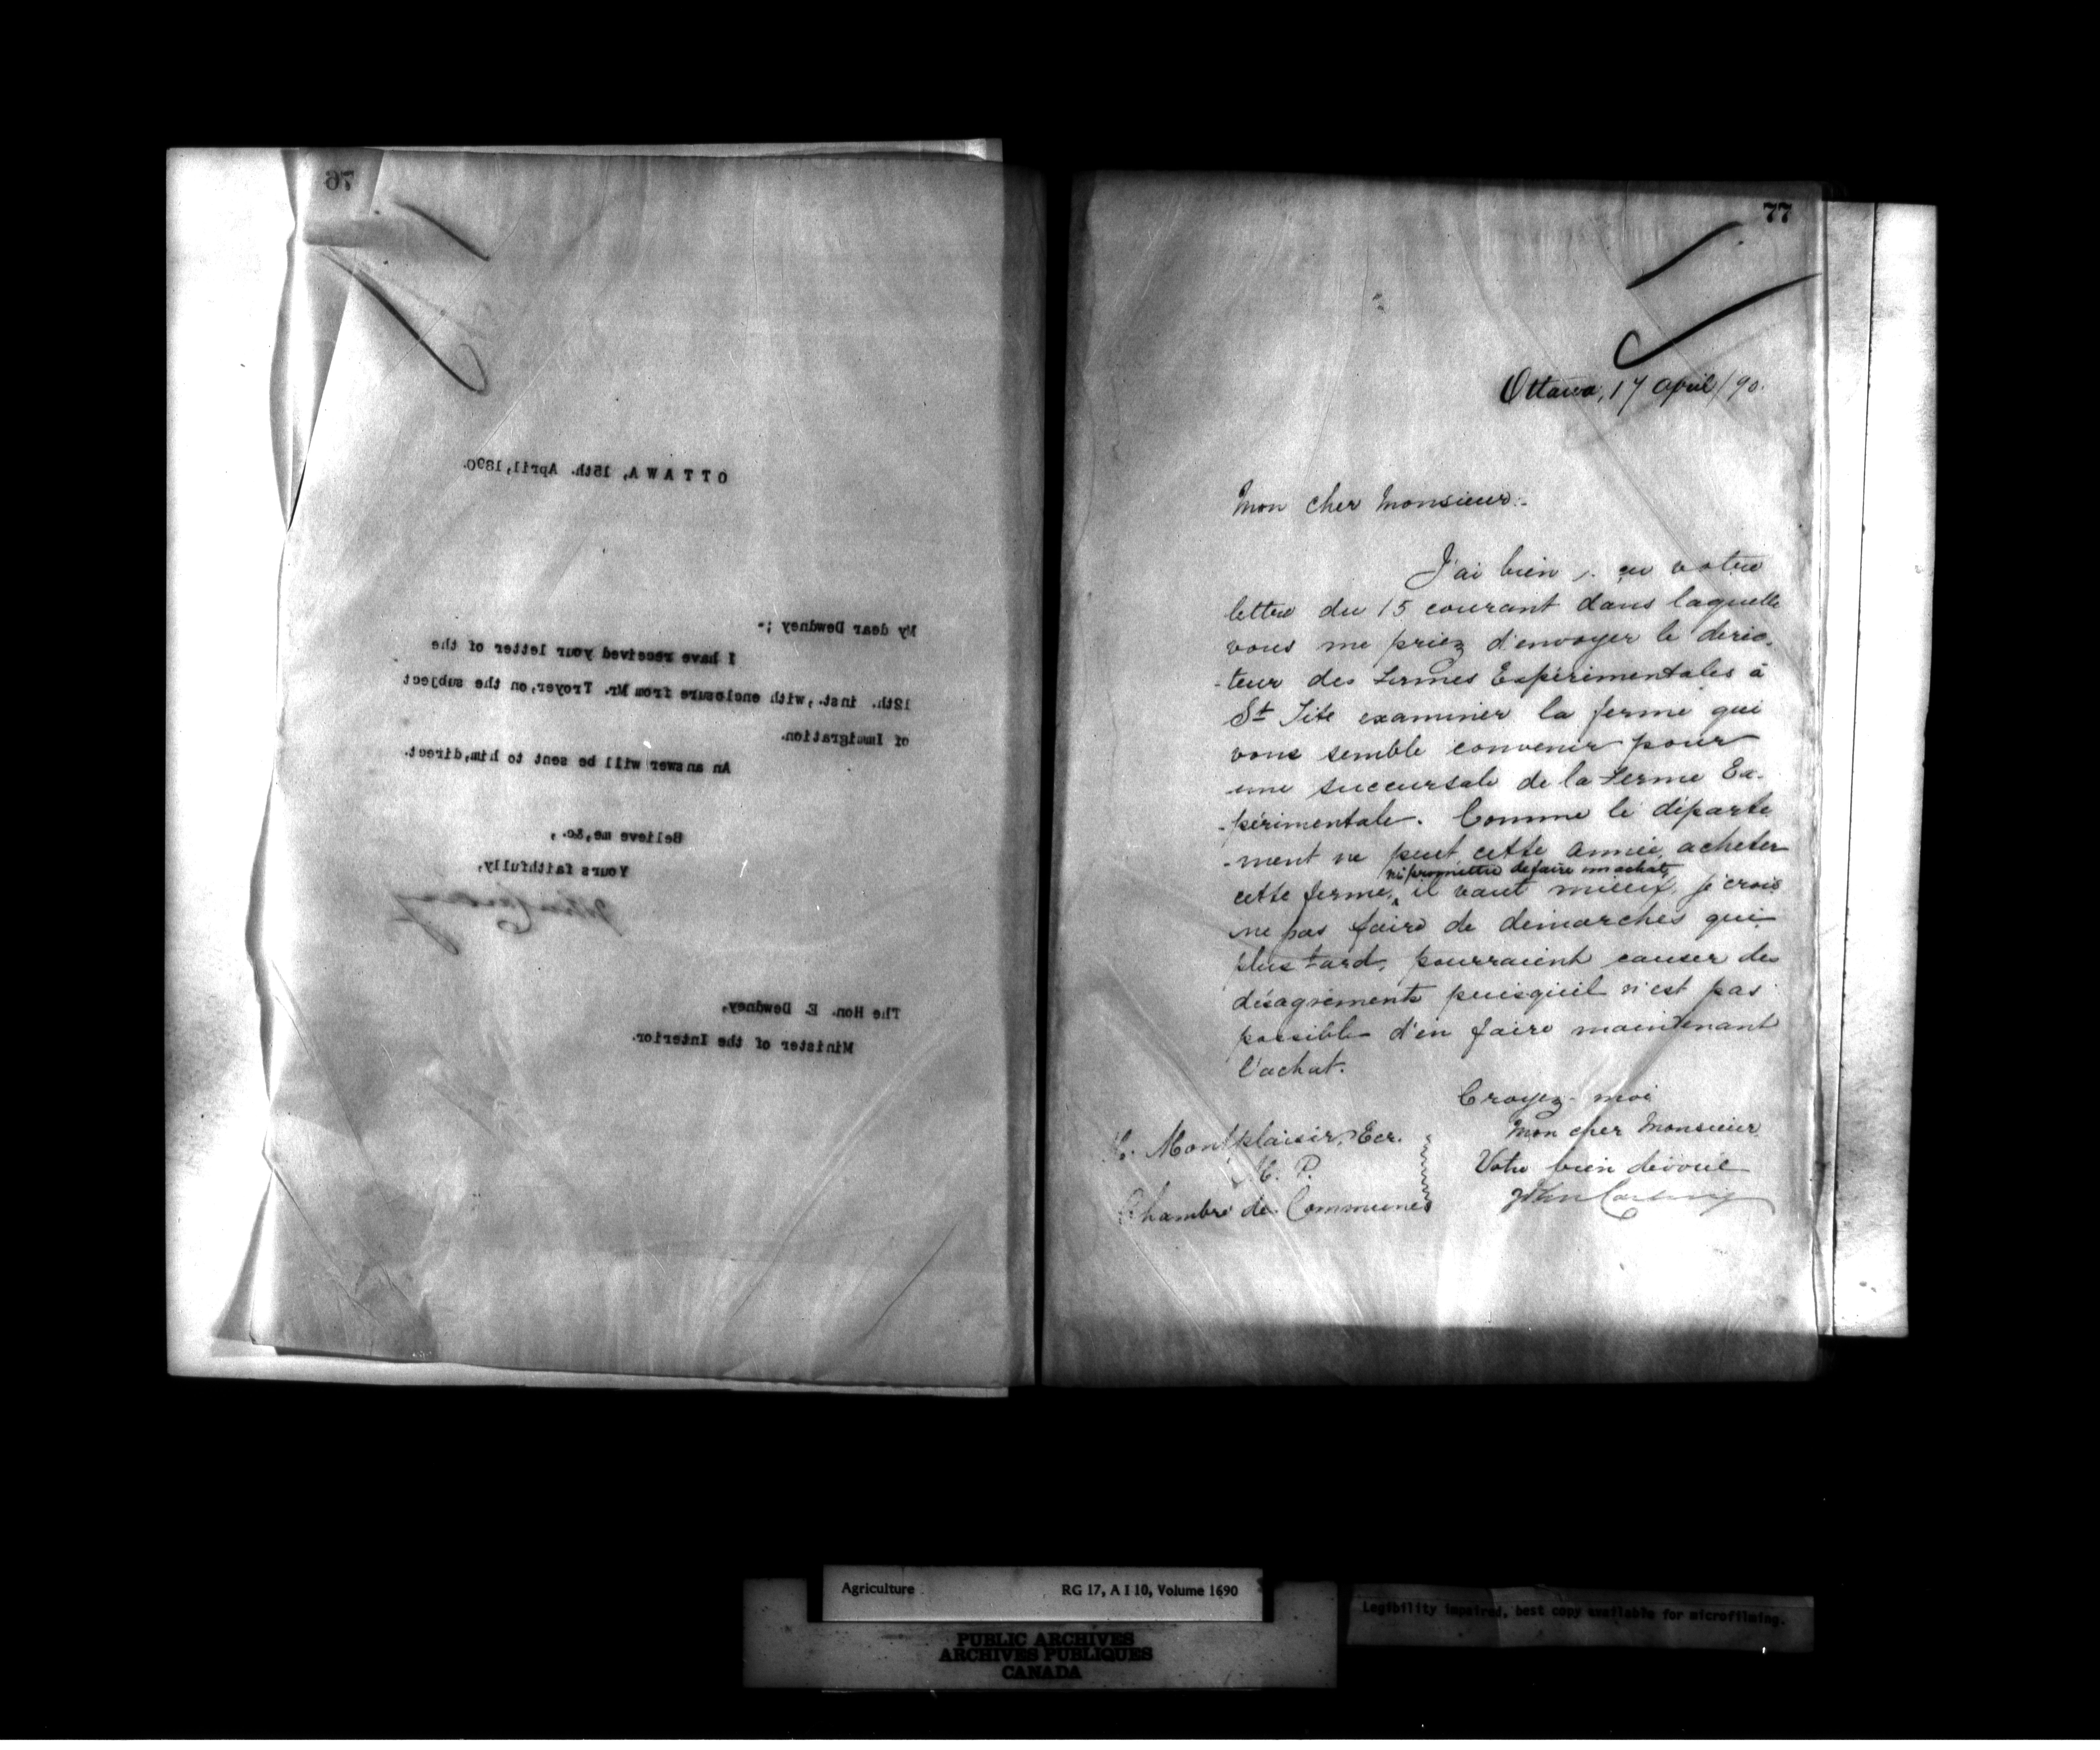 76
OTTAWA, 15th. April, 1890.
My dear Dewdney ;-
I have received your letter of the
12th. inst., with enclosure from Mr. Troyer, on the subject
of Immigration.
An answer will be sent to him, direct.
Believe me, &c.,
Yours faithfully,
John Carling
The Hon. E. Dewdney,
Minister of the Interior.
77
Ottawa, 17 april/90.
Mon cher Monsieur:-
J'ai bien reçu votre
lettre du 15 courant dans laquelle
vous me priez d'envoyer le direc-
-teur des Fermes Expérimentales à
St Tite examiner la ferme qui
vous semble convenir pour
une succursale de la Ferme Ex-
-périmentale. Comme le départe
-ment ne peut cette année, acheter
ni promettre de faire un achat,
cette ferme, il vaut mieux, je crois
ne pas faire de démarches qui
plus tard, pourraient causer des
désagréments puisqu'il n'est pas
possible d'en faire maintenant
l'achat.
Croyez-moi
Mon cher Monsieur
Votre bien dévoué
John Carling
Montplaisir, Ecr.
M. P.
Chambre des Communes
Agriculture RG 17, A I 10, Volume 1690
PUBLIC ARCHIVES
ARCHIVES PUBLIQUES
CANADA
Legibility impaired, best copy available for microfilming.